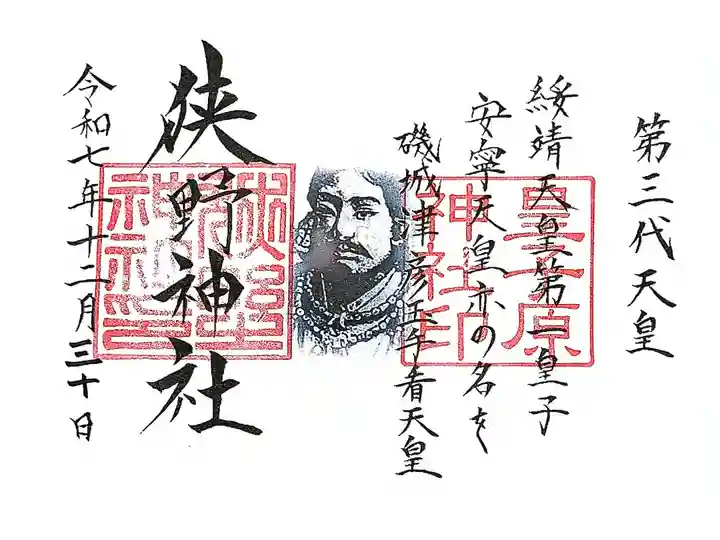 第三代天皇
綏靖天皇第一皇子
安寧天皇亦の名を
磯城津彦玉手看天皇
皇子原
神社印
狭野神社
令和七年十二月三十日